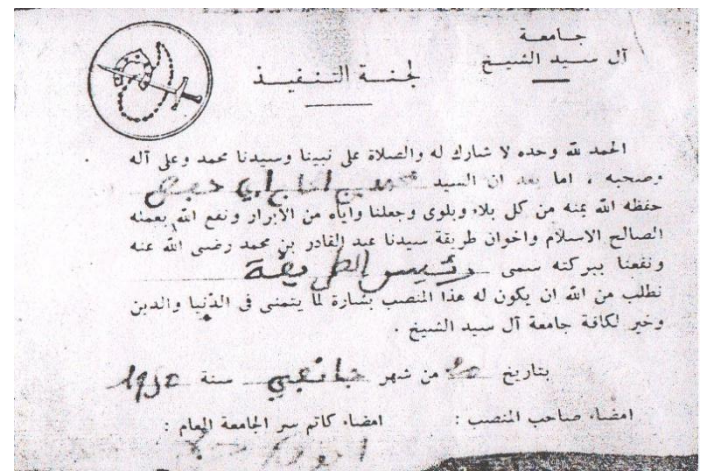 جامعة
آل سيد الشيخ
لجنة التنفيذ
الحمد لله وحده لا شارك له والصلاة على نبينا وسيدنا محمد وعلى آله
وصحبه ، اما بعد ان السيد محمد بن الحاج
حفظه الله بمنه من كل بلاء وبلوى وجعلنا واياه من الأبرار ونفع الله بعمله
الصالح الاسلام واخوان طريقة سيدنا عبد القادر بن محمد رضى الله عنه
ونفعنا ببركته سمى رئيس الطريقة
نطلب من الله ان يكون له هذا المنصب بشارة لما يتمنى فى الدنيا والدين
وخير لكافة جامعة آل سيد الشيخ .
بتاريخ من شهر جانفي سنة 1950
امضاء صاحب المنصب : امضاء كاتم سر الجامعة العام :